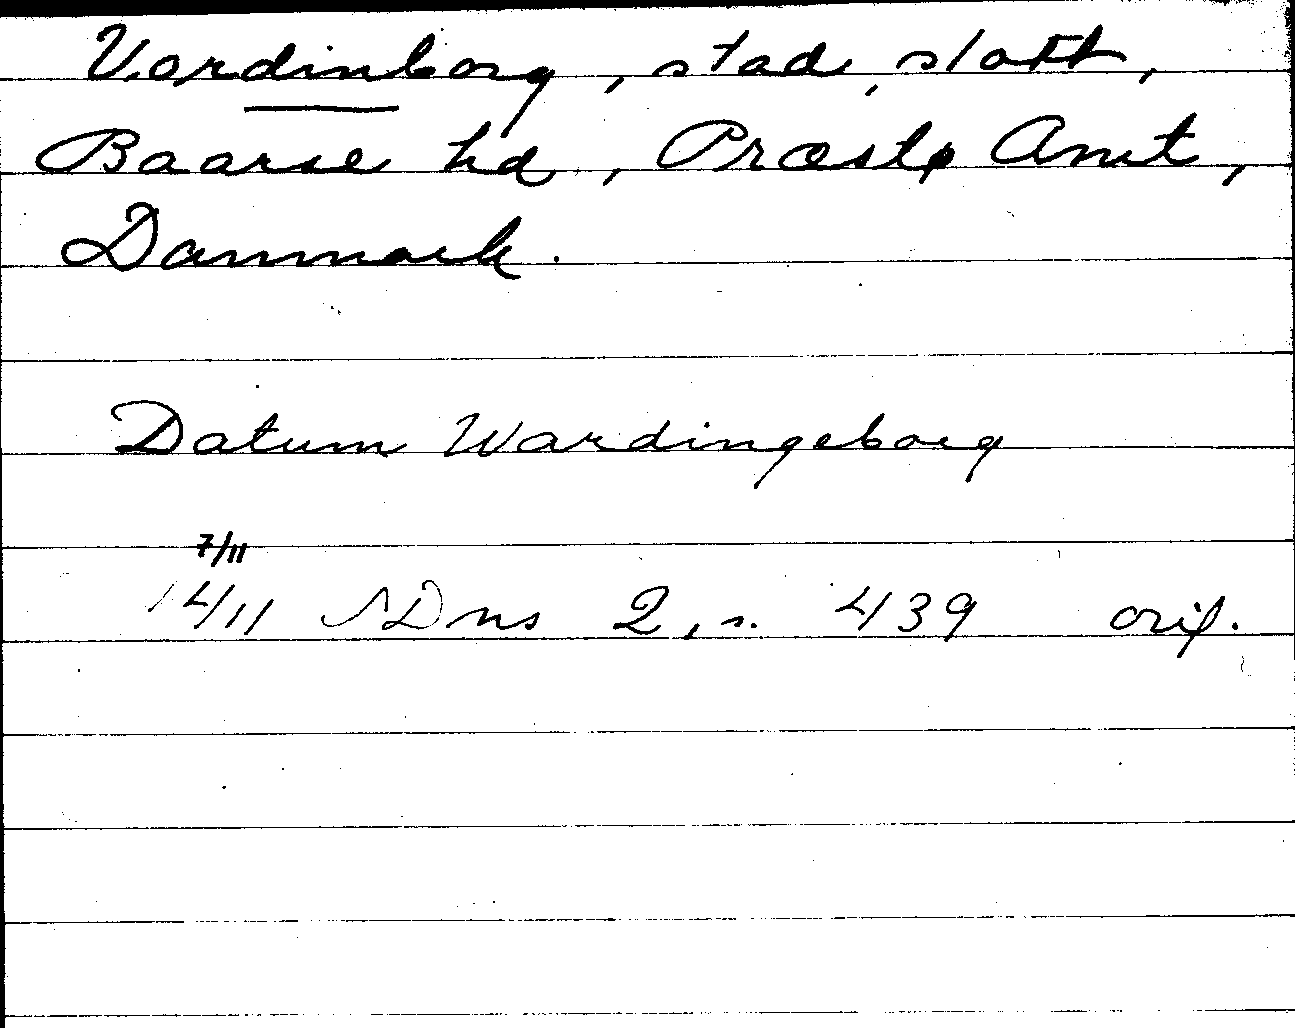 Vordinborg, stad, slott,
Baarse hd, Præstø Amt,
Danmark.
Datum Wardingeborg
7/11
14/11 SDns 2, s. 439 orig.